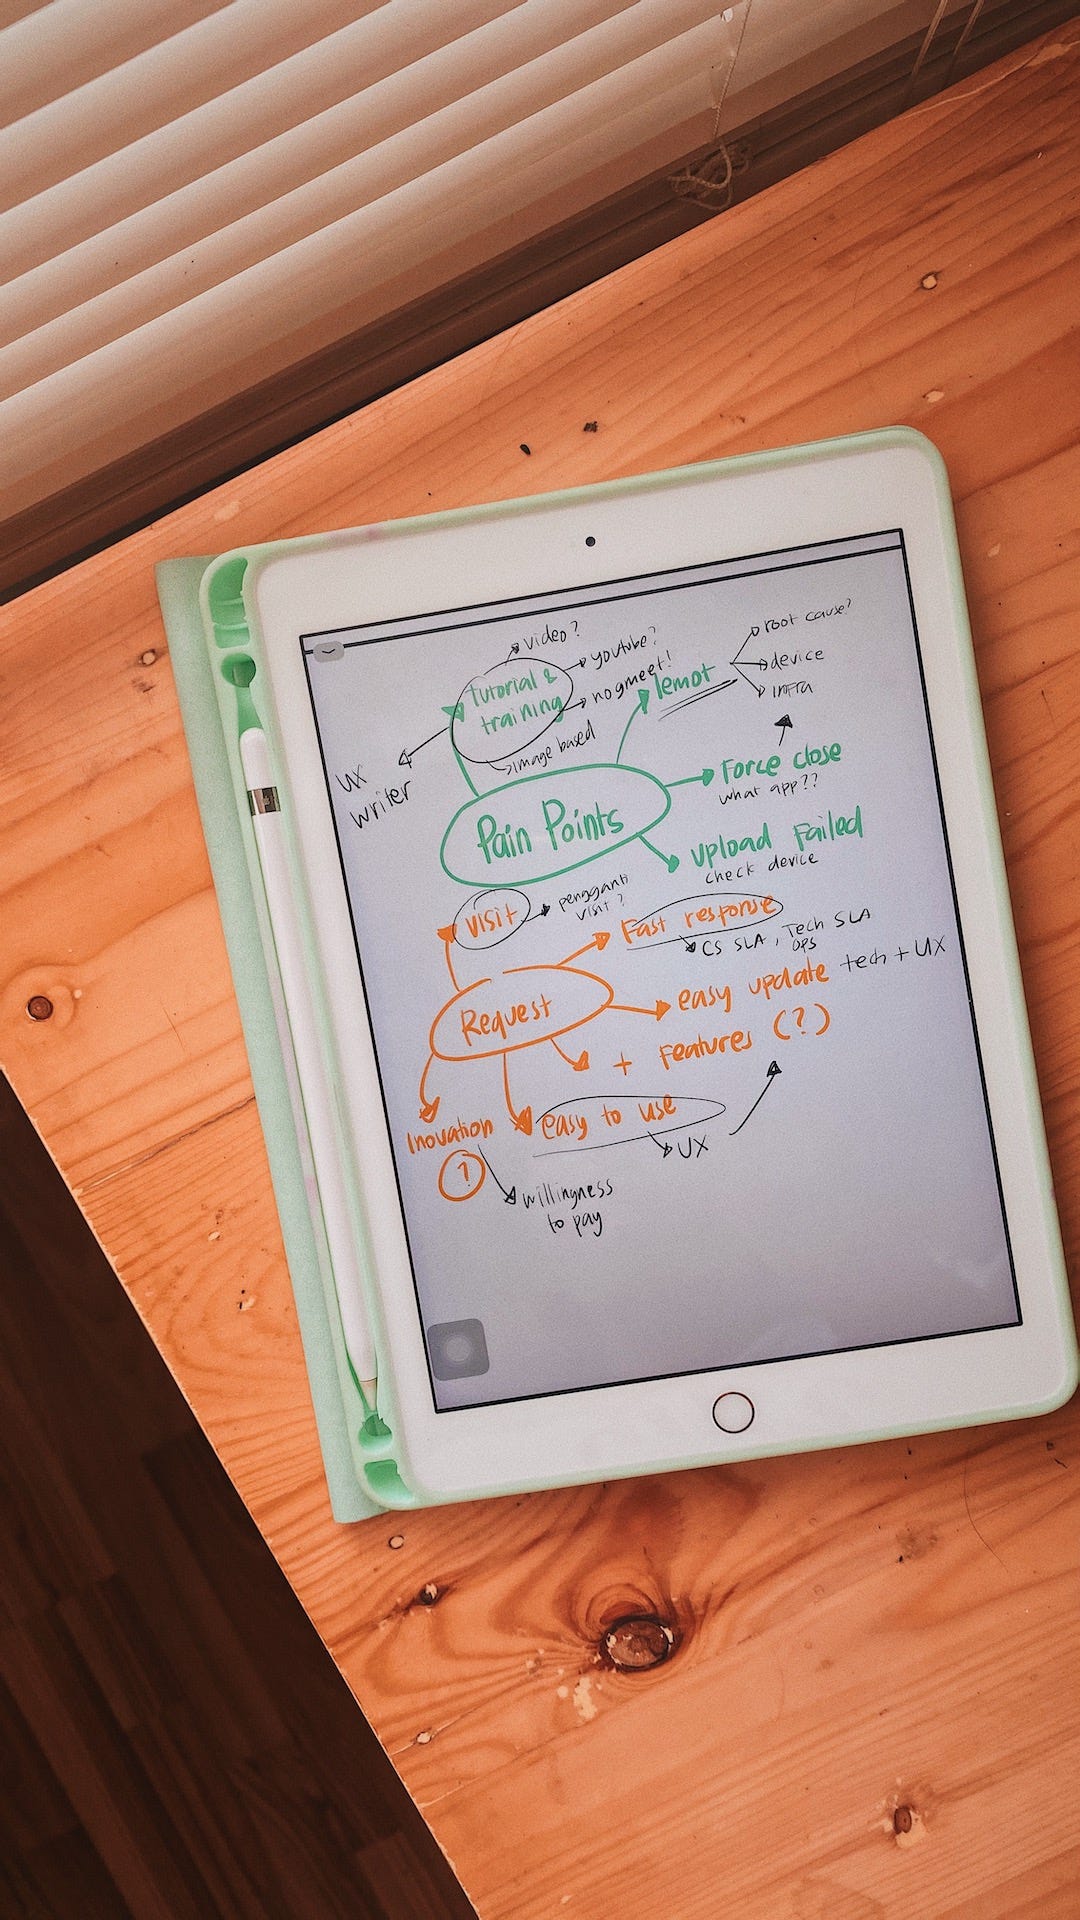 video?
youtube?
no gmeet!
tutorial &
training
image based
ux
writer
lemot
root cause?
device
infra
Pain Points
Force close
what app??
upload Failed
check device
visit
pengganti
visit?
Fast response
CS SLA, Tech SLA
ops
Request
easy update tech + UX
+ Features (?)
Inovation
?
easy to use
UX
willingness
to pay